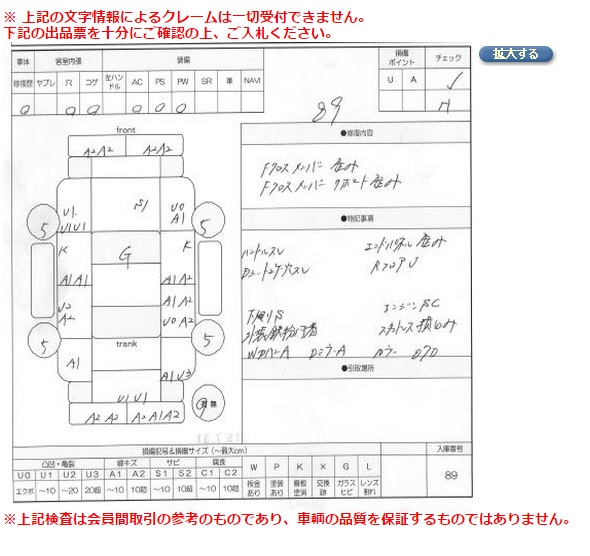 ※ 上記の文字情報によるクレームは一切受付できません。
下記の出品票を十分にご確認の上、ご入札ください。
拡大する
車体 客室内張 装備 損傷ポイント チェック
修復歴 ヤブレ 穴 コゲ 左ハンドル AC PS PW SR 革 NAVI U A
89
●修復内容
Fクロスメンバー 歪み
Fクロスメンバー サポート歪み
●特記事項
ハンドルスレ エンドパネル歪み
RフロアU
下回りS エンジンSC
Wカバー A Dミラー A カラー 070
●引取場所
front
A2 A2 A2 A2
U1 S1 U0
U1 U1 A1
5 5
K G K
A1 A1 A1 A2
U2 A1 A2
A2 U0 A2
5 5
trank
A1 A1 U3
U1 U1
A2 A2 A2 A1 A2
有 無
損傷記号&損傷サイズ(〜最大cm) 入庫番号
凸凹・亀裂 線キズ サビ 腐食 W P K X G L
U0 U1 U2 U3 A1 A2 S1 S2 C1 C2 板金あり 塗装あり 看板塗消 交換跡 ガラスヒビ レンズ割れ
エクボ 〜10 〜20 20超 〜10 10超 〜10 10超 〜10 10超
89
※上記検査は会員間取引の参考のものであり、車輌の品質を保証するものではありません。